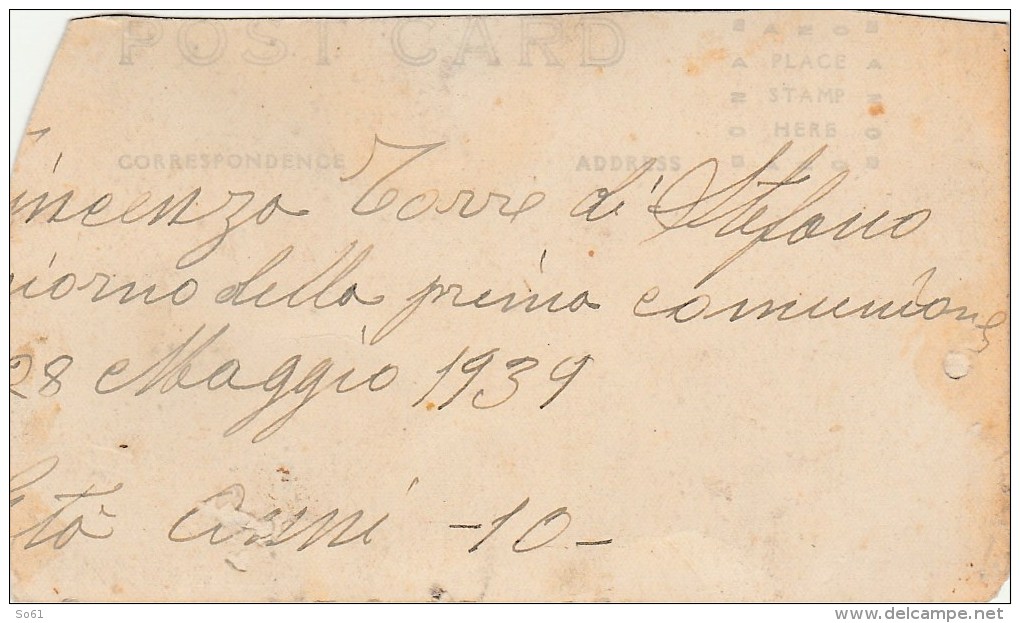 POST CARD
PLACE
STAMP
HERE
CORRESPONDENCE ADDRESS
incenza Torre di Stefano
iorno della prima comunione
28 Maggio 1939
Età Anni -10-
So61
www.delcampe.net